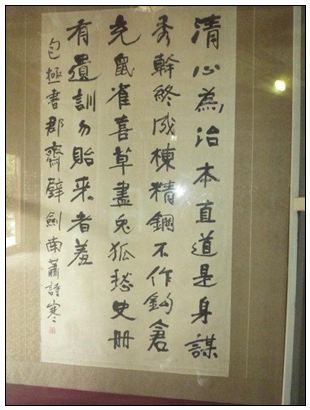 清心為治本直道是身謀
秀幹終成棟精鋼不作鈎倉
充鼠雀喜草盡兔狐愁史冊
有遺訓勿貽来者羞
包拯書郡齋壁劍南蕭詩寒